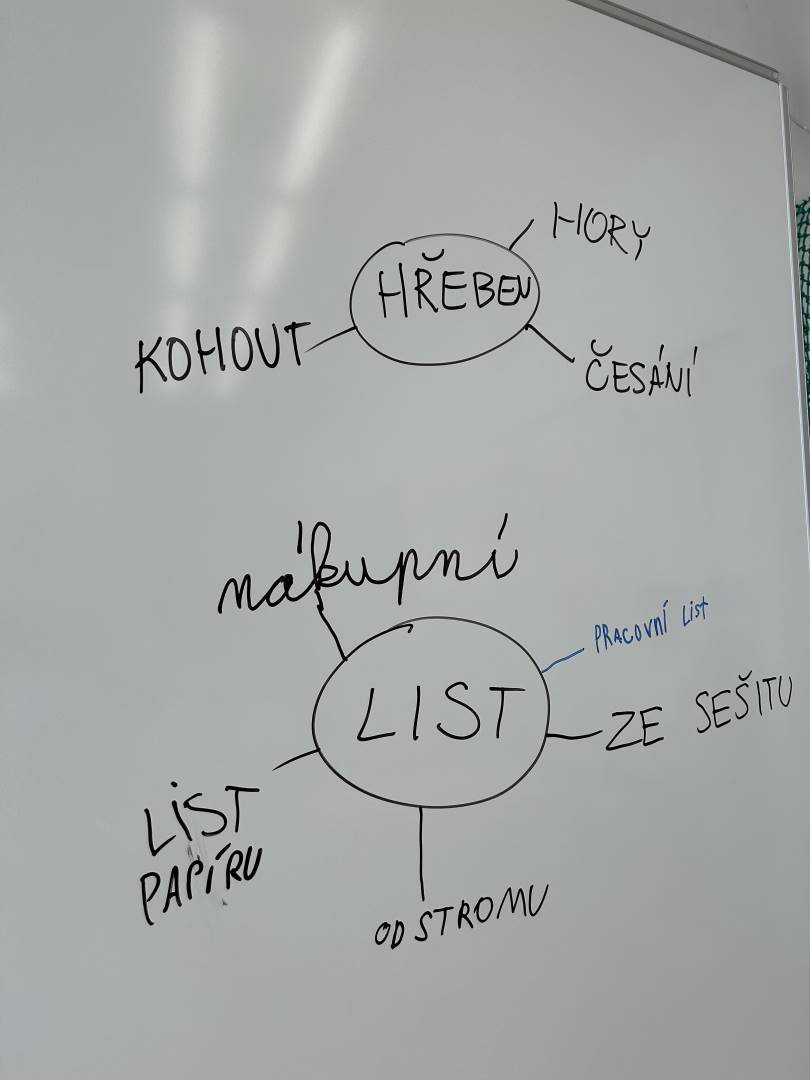 HORY
HŘEBEN
KOHOUT
ČESÁNÍ
nákupní
PRACOVNÍ LIST
LIST
ZE SEŠITU
LIST
PAPÍRU
OD STROMU